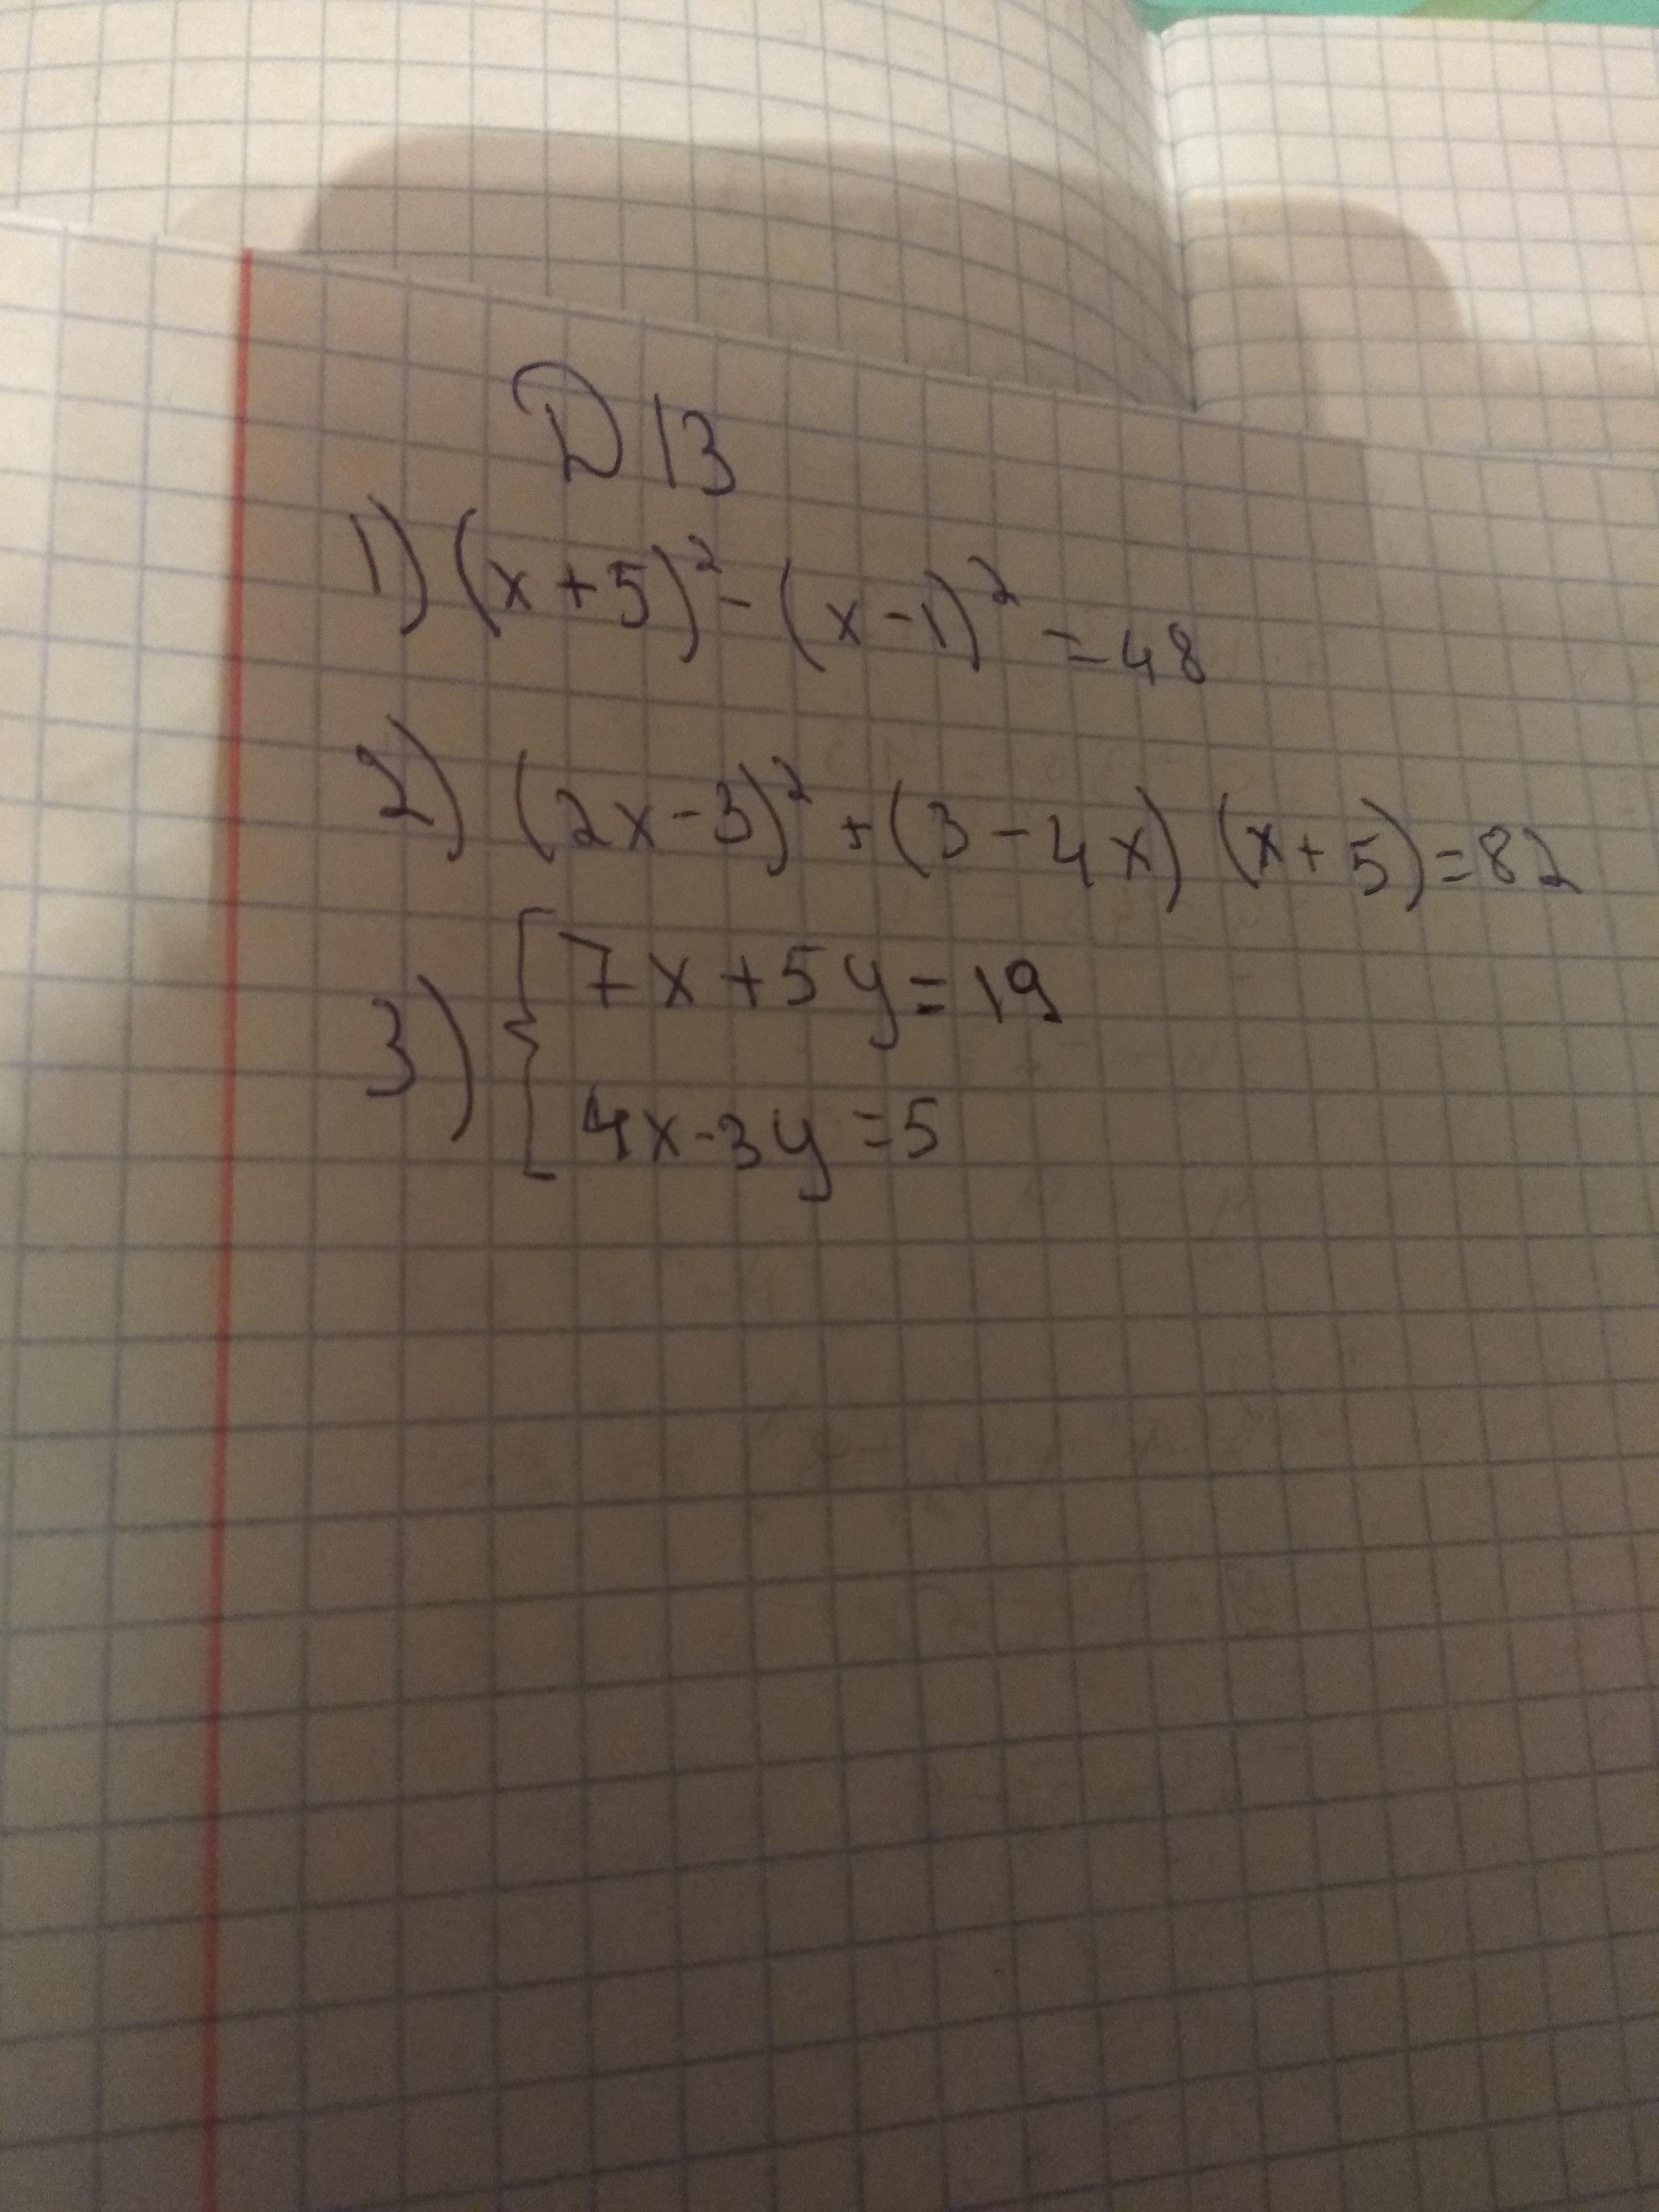 D13
1) (x+5)² - (x-1)² = 48
2) (2x-3)² + (3-4x) (x+5) = 82
3) { 7x+5y=19
4x-3y=5